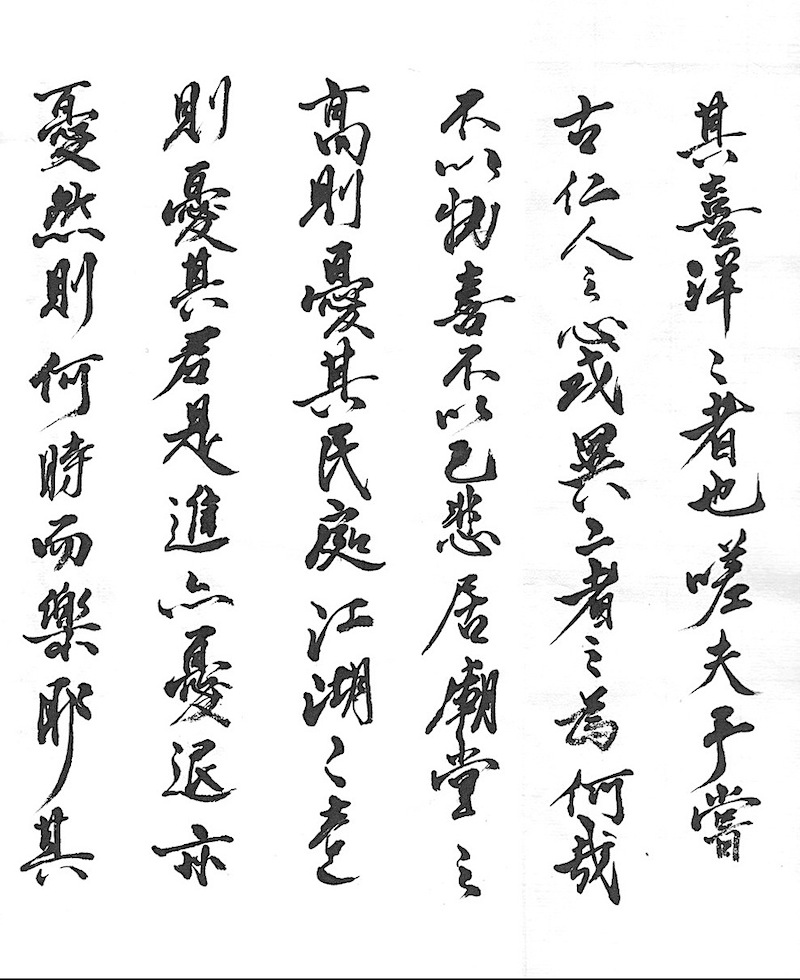 其喜洋〻者也嗟夫予嘗
古仁人之心或異二者之為何哉
不以物喜不以己悲居廟堂之
高則憂其民處江湖之遠
則憂其君是進亦憂退亦
憂然則何時而樂耶其